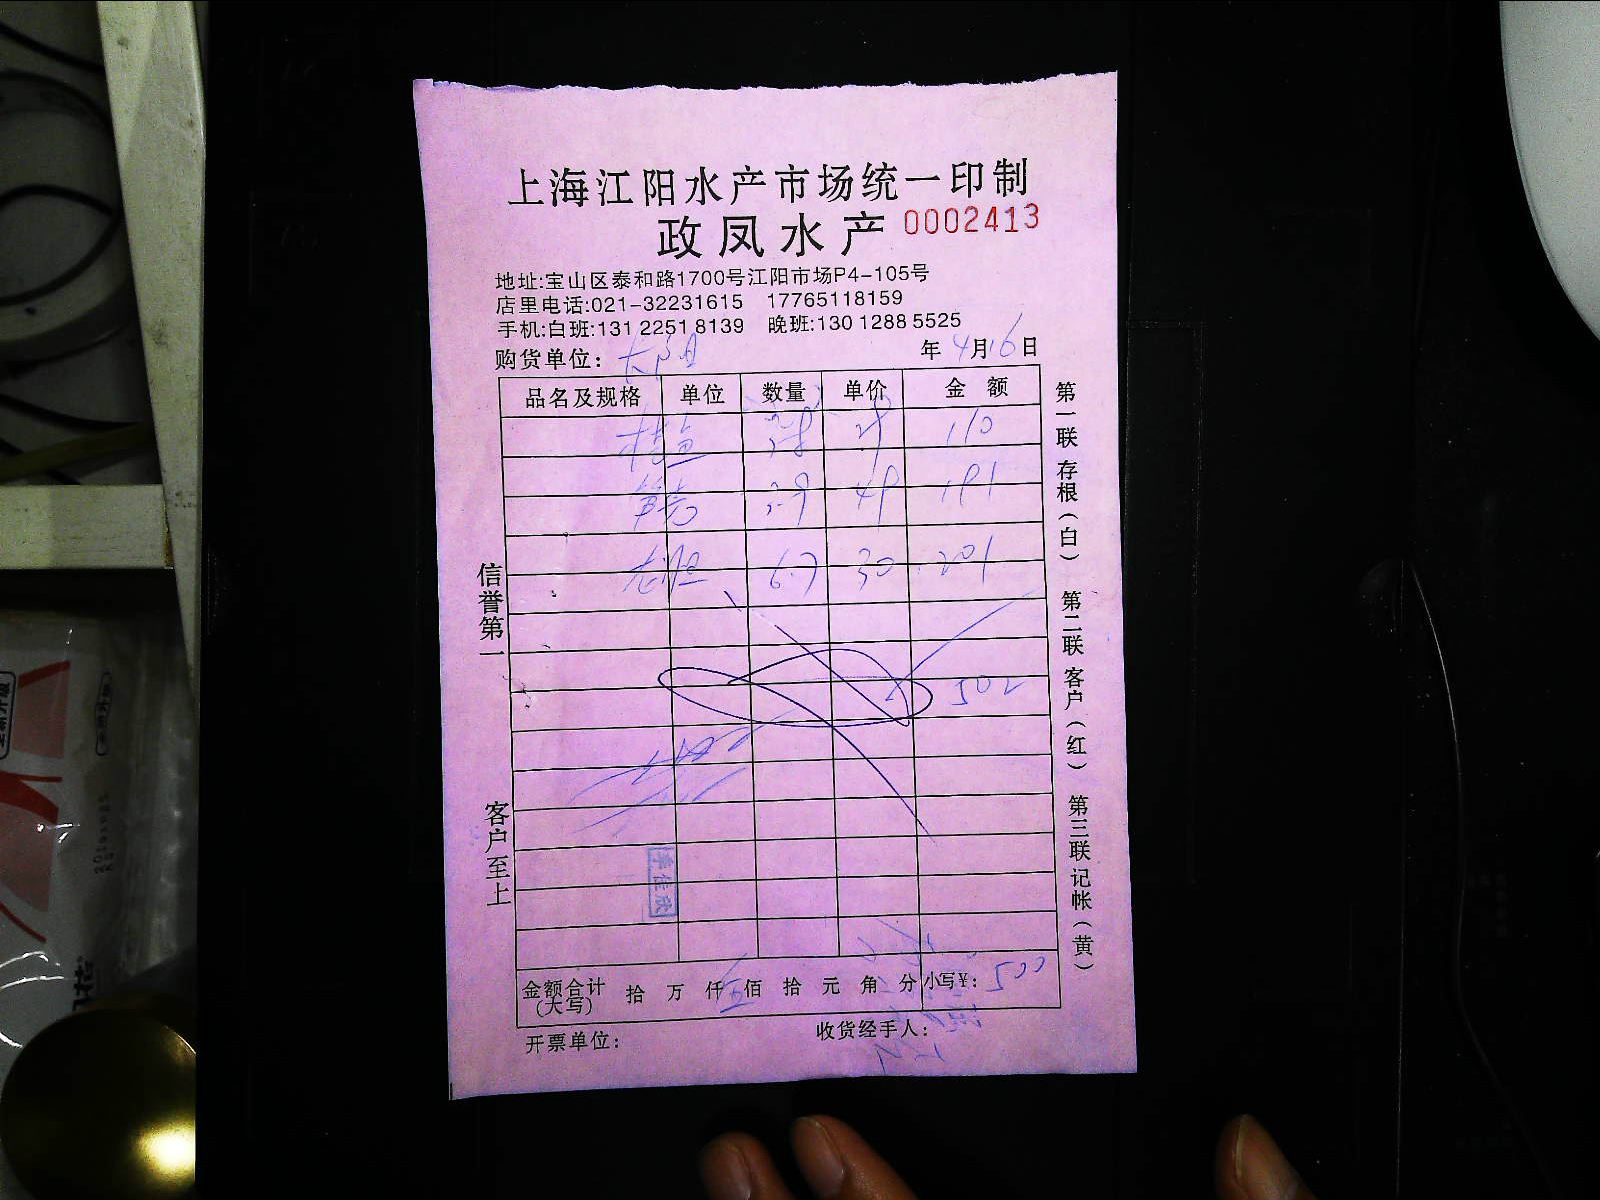 上海江阳水产市场统一印制
政凤水产 0002413
地址:宝山区泰和路1700号江阳市场P4-105号
店里电话:021-32231615 17765118159
手机:白班:131 2251 8139 晚班:130 1288 5525
购货单位: 年 4月16日
品名及规格 单位 数量 单价 金额
110
191
6.7 30 201
502
金额合计(大写) 拾 万 仟 伍佰 拾 元 角 分 小写¥: 500
开票单位: 收货经手人:
信誉第一
客户至上
第一联存根(白) 第二联客户(红) 第三联记帐(黄)
李佳欣